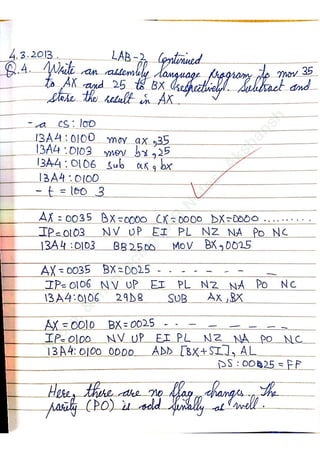 4.3.2013. LAB-2 Continued
Q.4. Write an assembly language program to mov 35
to AX and 25 to BX respectively. Subtract and
store the result in AX.
-a cs:100
13A4:0100 mov ax,35
13A4:0103 mov bx,25
13A4:0106 sub ax,bx
13A4:0100
-t=100 3
AX=0035 BX=0000 CX=0000 DX=0000 .........
IP=0103 NV UP EI PL NZ NA PO NC
13A4:0103 BB2500 MOV BX,0025
AX=0035 BX=0025 - - - - - - - -
IP=0106 NV UP EI PL NZ NA PO NC
13A4:0106 29D8 SUB AX,BX
AX=0010 BX=0025 - - - - - - - -
IP=0100 NV UP EI PL NZ NA PO NC
13A4:0100 0000 ADD [BX+SI],AL
DS:0025=FF
Here, there are no flag changes. The
parity (PO) is odd finally as well.